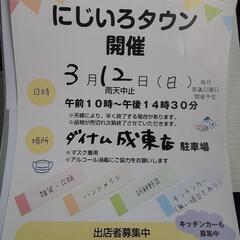 にじいろタウン
開催
3月12日(日)
毎月
第2日曜日
開催予定
日時
雨天中止
午前10時～午後14時30分
※天候により、早く終了する場合があります。
※品物が売り切れ次第終了とさせていただきます。
場所
ダイナム成東店 駐車場
※マスク着用
※アルコール消毒にご協力をお願いします
雑貨・古着
ハンドメイド
新鮮野菜
キッチンカー
(無い場合もあり)
出店者募集中
キッチンカーも
募集中